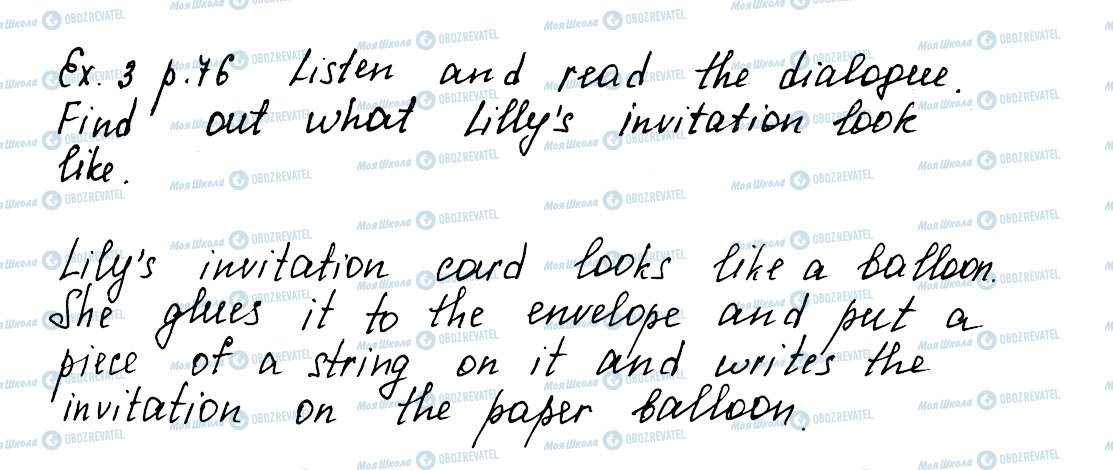 Ex. 3 p.76 Listen and read the dialogue.
Find out what Lilly's invitation look
like.
Lily's invitation card looks like a balloon.
She glues it to the envelope and put a
piece of a string on it and writes the
invitation on the paper balloon.